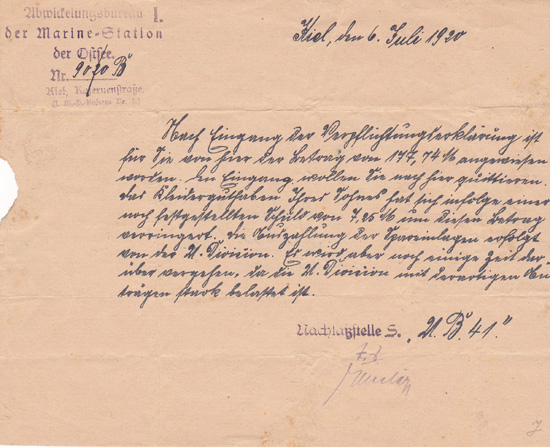 Abwickelungsbureau I.
der Marine-Station
der Ostsee.
Nr. 9070 B
Kiel, Kasernenstraße.
Kiel, den 6. Juli 1920
Nach Eingang der Verpflichtungserklärung ist
für Sie von hier der Betrag von 177,74 M angewiesen
worden. Den Eingang wollen Sie nach hier quittieren.
Das Kleiderguthaben Ihres Sohnes hat sich infolge einer
noch festgestellten Schuld von 7,25 M um diesen Betrag
verringert. Die Auszahlung der Spareinlagen erfolgt
von der U. Division. Es wird aber noch einige Zeit dar
über vergehen, da die U. Division mit derartigen An
trägen stark belastet ist.
Nachlaßstelle S. „U. B. 41."